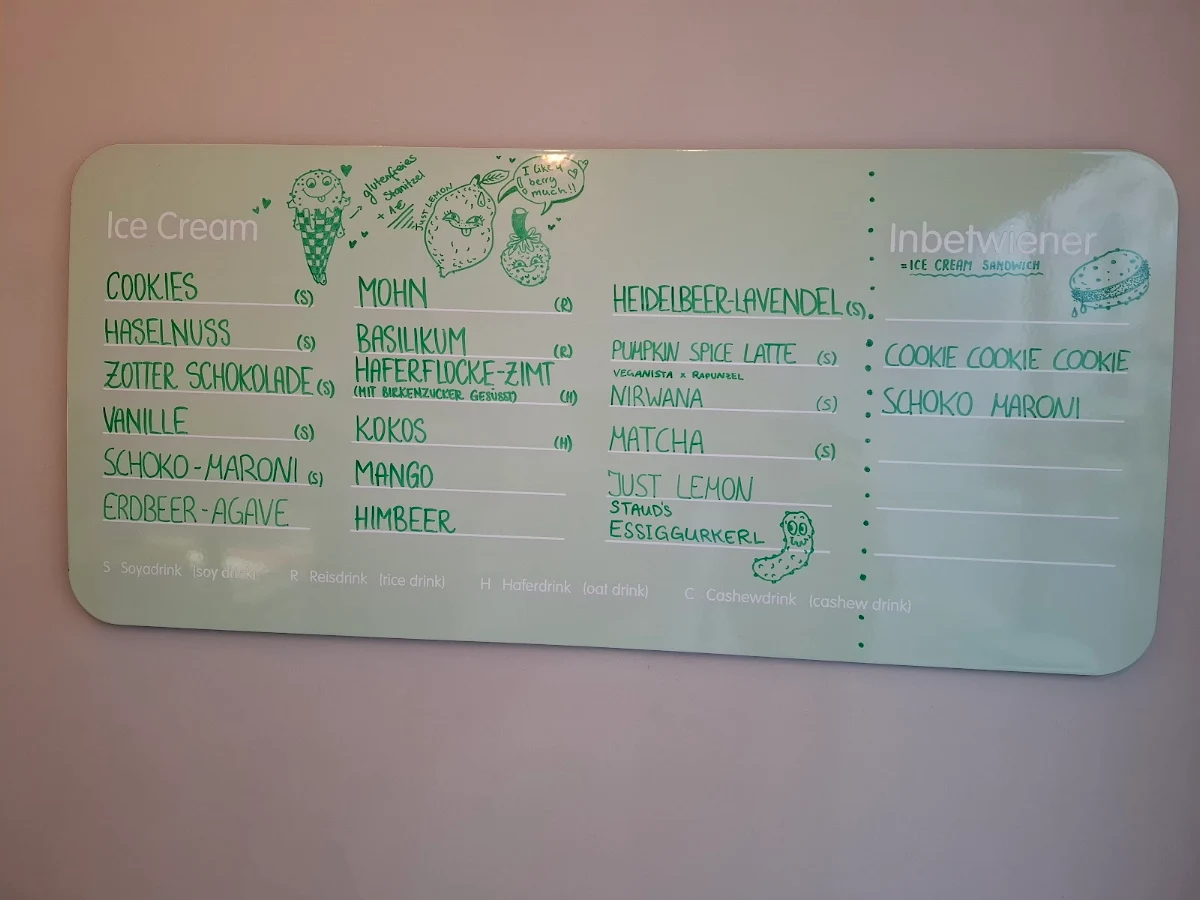 Ice Cream
glutenfreies
Stanitzel
+ 1€
JUST LEMON
I like u
berry
much!!
COOKIES (S)
HASELNUSS (S)
ZOTTER SCHOKOLADE (S)
VANILLE (S)
SCHOKO-MARONI (S)
ERDBEER-AGAVE
MOHN (R)
BASILIKUM (R)
HAFERFLOCKE-ZIMT
(MIT BIRKENZUCKER GESÜSST) (H)
KOKOS (H)
MANGO
HIMBEER
HEIDELBEER-LAVENDEL (S)
PUMPKIN SPICE LATTE (S)
VEGANISTA x RAPUNZEL
NIRWANA (S)
MATCHA (S)
JUST LEMON
STAUD'S
ESSIGGURKERL
Inbetwiener
=ICE CREAM SANDWICH
COOKIE COOKIE COOKIE
SCHOKO MARONI
S Soyadrink (soy drink) R Reisdrink (rice drink) H Haferdrink (oat drink) C Cashewdrink (cashew drink)